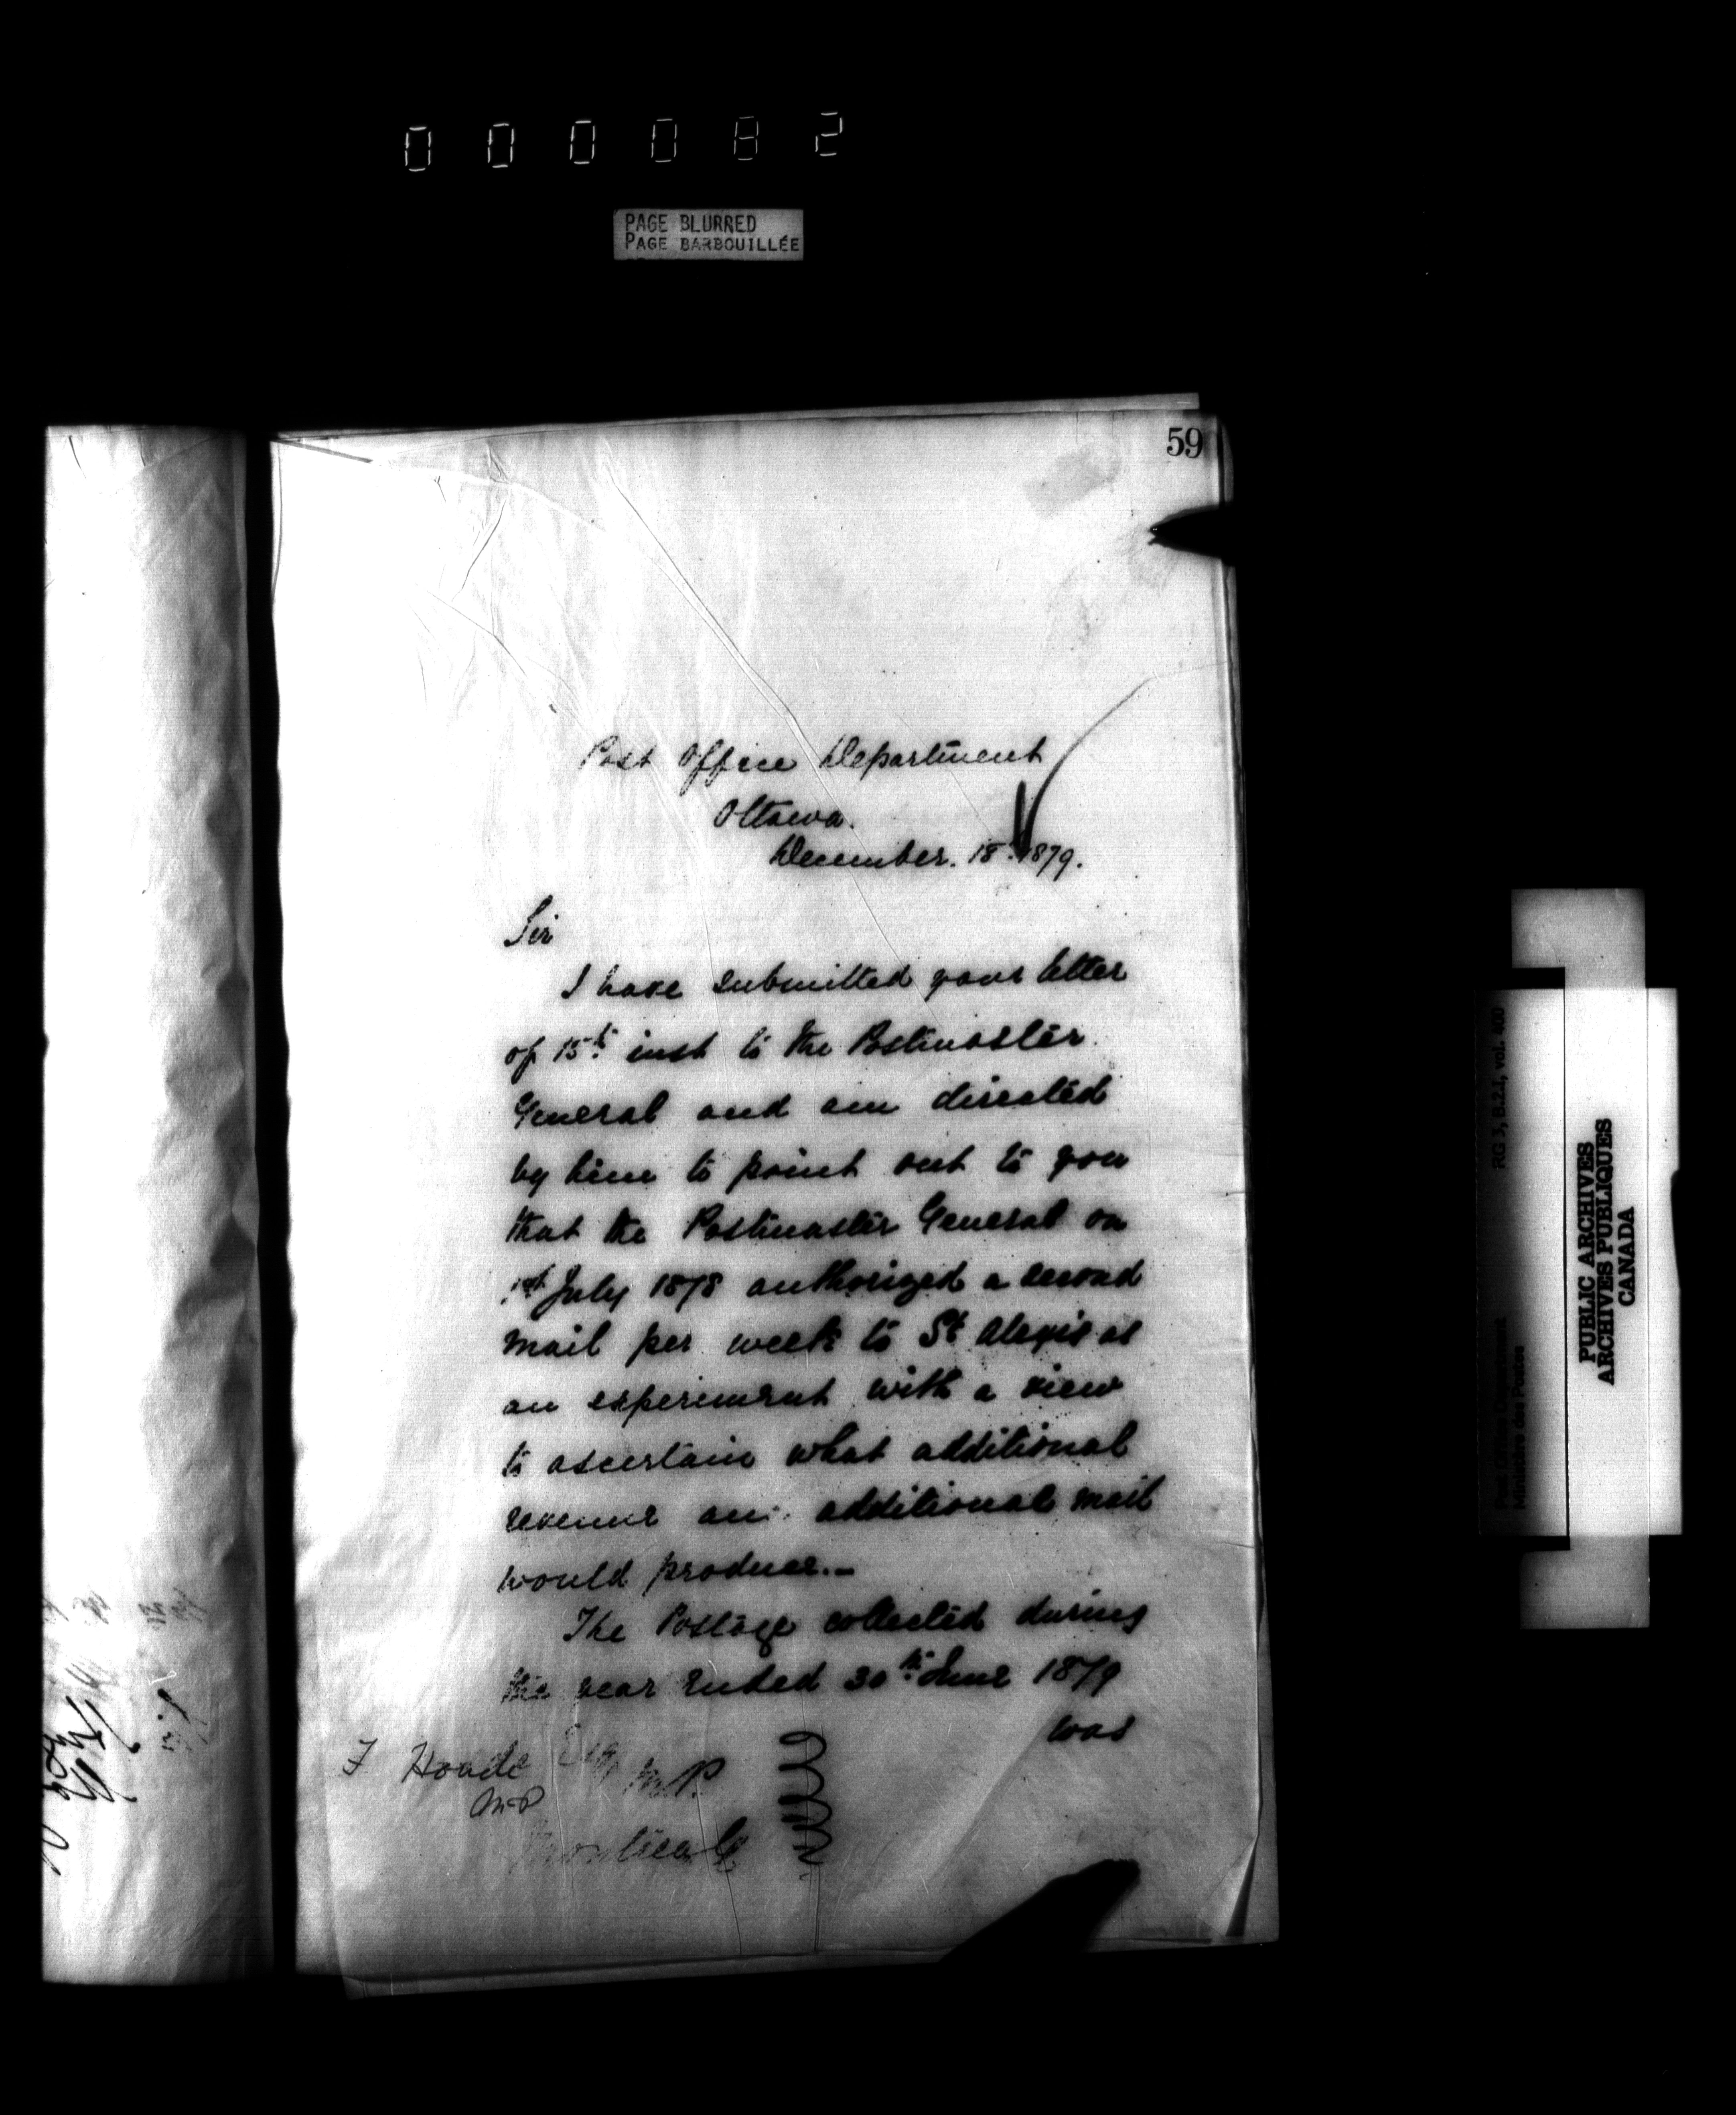 000082
PAGE BLURRED
PAGE BARBOUILLÉE
59
Post Office Department
Ottawa.
December. 18. 1879.
Sir
I have submitted your letter
of 15th inst to the Postmaster
General and am directed
by him to point out to you
that the Postmaster General on
1st July 1878 authorized a second
mail per week to St Alexis as
an experiment with a view
to ascertain what additional
revenue an additional mail
would produce.-
The Postage collected during
the year ended 30th June 1879
was
F Houde Esq M.P.
M.P
Montreal
RG 3, B.2.1, vol. 400
Post Office Department
Ministère des Postes
PUBLIC ARCHIVES
ARCHIVES PUBLIQUES
CANADA